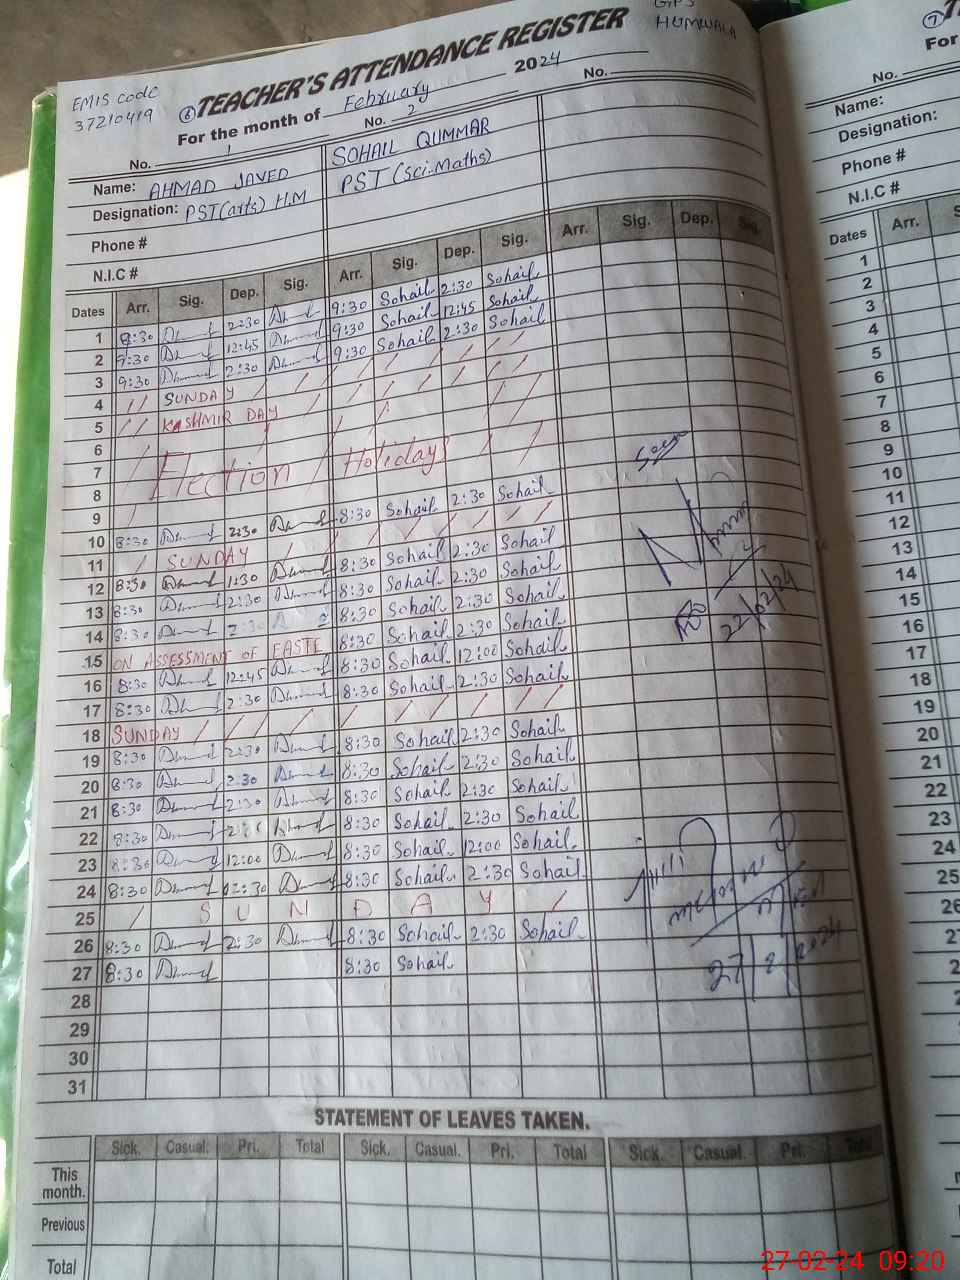 GPS
HUMWALA
EMIS code
37210419
6 TEACHER'S ATTENDANCE REGISTER
For the month of February 2024
No. 1 No. 2 No.
Name: AHMAD JAVED SOHAIL QUMMAR
Designation: PST(arts) H.M PST (sci-Maths)
Phone #
N.I.C #
Dates Arr. Sig. Dep. Sig. Arr. Sig. Dep. Sig. Arr. Sig. Dep. Sig.
1 8:30 2:30 9:30 Sohail 2:30 Sohail
2 9:30 12:45 9:30 Sohail 12:45 Sohail
3 9:30 2:30 9:30 Sohail 2:30 Sohail
4 SUNDAY
5 KASHMIR DAY
6
7 Election Holidays
8
9
10 8:30 2:30 8:30 Sohail 2:30 Sohail
11 SUNDAY
12 8:30 1:30 8:30 Sohail 2:30 Sohail
13 8:30 2:30 8:30 Sohail 2:30 Sohail
14 8:30 2:30 8:30 Sohail 2:30 Sohail
15 ON ASSESSMENT OF EASTE 8:30 Sohail 2:30 Sohail
16 8:30 12:45 8:30 Sohail 12:00 Sohail
17 8:30 2:30 8:30 Sohail 2:30 Sohail
18 SUNDAY
19 8:30 2:30 8:30 Sohail 2:30 Sohail
20 8:30 2:30 8:30 Sohail 2:30 Sohail
21 8:30 2:30 8:30 Sohail 2:30 Sohail
22 8:30 8:30 Sohail 2:30 Sohail
23 8:30 12:00 8:30 Sohail 12:00 Sohail
24 8:30 12:30 8:30 Sohail 2:30 Sohail
25 SUNDAY
26 8:30 2:30 8:30 Sohail 2:30 Sohail
27 8:30 8:30 Sohail
28
29
30
31
22/02/24
27/2/2024
STATEMENT OF LEAVES TAKEN.
Sick. Casual. Pri. Total Sick. Casual. Pri. Total Sick. Casual. Pri. Total
This month.
Previous
Total
7
For
No.
Name:
Designation:
Phone #
N.I.C #
Dates Arr.
1
2
3
4
5
6
7
8
9
10
11
12
13
14
15
16
17
18
19
20
21
22
23
24
25
27-02-24 09:20